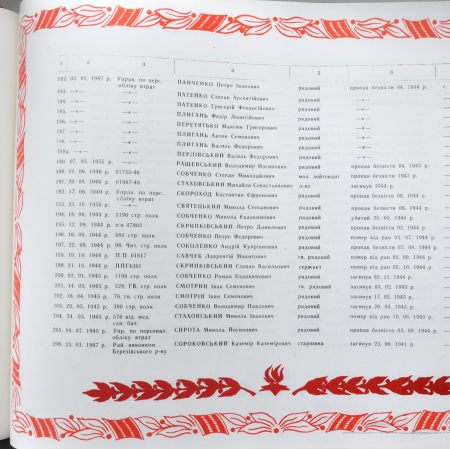 1 2 3 4 5 6
182. 03. 03. 1967 р. Упр. по перс. ПАНЧЕНКО Петро Іванович рядовий пропав безвісті 04. 1944 р.
обліку втрат
183. —«— —«— ПАТЕНКО Степан Арсентійович рядовий —«—
184. —«— —«— ПАТЕНКО Григорій рядовий —«—
185. —«— —«— ПЛИГАНЬ Федір Леонтійович рядовий —«—
186. —«— —«— ПЕРЕТЯТЬКО Максим Григорович рядовий —«—
187. —«— —«— ПЛИГАНЬ Антон Семенович рядовий —«—
188. —«— —«— ПЛИГАНЬ Василь Федорович рядовий —«—
188а. —«— —«— ПЕРЛІВСЬКИЙ Василь Федорович рядовий —«—
189. 07. 05. 1955 р. —«— РАШЕВСЬКИЙ Володимир Йосипович рядовий пропав безвісті 04. 1945 р.
190. 21. 06. 1946 р. 01753-46 СОБЧЕНКО Степан Миколайович мол. лейтенант пропав 1943 р.
191. 20. 06. 1946 р. 01867-46 СТАХОВСЬКИЙ Михайло Севастьянович л-нт загинув 1944 р.
192. 17. 06. 1949 р. Упр. по перс. СКОРОХОД Костянтин Єфремович рядовий пропав безвісті 06. 1944 р.
обліку втрат
193. 23. 10. 1950 р. —«— СВЯТЕЦЬКИЙ Микола Степанович рядовий пропав безвісті 06. 1944 р.
194. 16. 06. 1944 р. 1196 стр. полк СОБЧЕНКО Микола Євдокимович рядовий убитий 25. 05. 1944 р.
195. 12. 08. 1944 р. п/я 47903 СКРИПКІВСЬКИЙ Петро Данилович рядовий пропав безвісті 03. 1944 р.
196. 16. 09. 1944 р. 682 стр. полк СОБЧЕНКО Петро Федорович рядовий помер від ран 03. 07. 1944 р.
197. 22. 09. 1944 р. 96. Чит. стр. полк СОКОЛЕНКО Андрій Купріянович рядовий пропав безвісті 07. 09. 1944 р.
198. 19. 10. 1944 р. П/П 01817 САВЧУК Лаврентій Микитович гв. рядовий помер від ран 02. 10. 1944 р.
199. 21. 10. 1944 р. ППГ6361 СКРИПКІВСЬКИЙ Степан Васильович сержант помер від ран 03. 10. 1944 р.
200. 02. 01. 1945 р. 1198 стр. полк СОБЧЕНКО Роман Євдокимович рядовий загинув 02. 11. 1944 р.
201. 14. 03. 1945 р. 228. ГВ. стр. полк СМОТРИЧ Іван Семенович гв. рядовий загинув 03. 02. 1945 р.
202. 16. 04. 1945 р. 76. гв. стр. полк СМОТРІЙ Іван Семенович рядовий загинув 17. 02. 1945 р.
203. 23. 05. 1945 р. 590 стр. полк СОБЧЕНКО Володимир Павлович рядовий загинув 20. 04. 1945 р.
204. 24. 05. 1945 р. 570 від. мед. СТАХОВСЬКИЙ Микола Іванович рядовий помер від ран 10. 05. 1945 р.
сан. бат.
205. 04. 07. 1945 р. Упр. по персонал. СИРОТА Микола Йосипович рядовий пропав безвісті 03. 08. 1944 р.
обліку втрат
206. 25. 03. 1947 р. Рай. виконком СОРОКОВСЬКИЙ Казимір Казимірович старшина загинув 23. 09. 1941 р.
Березівського р-ну